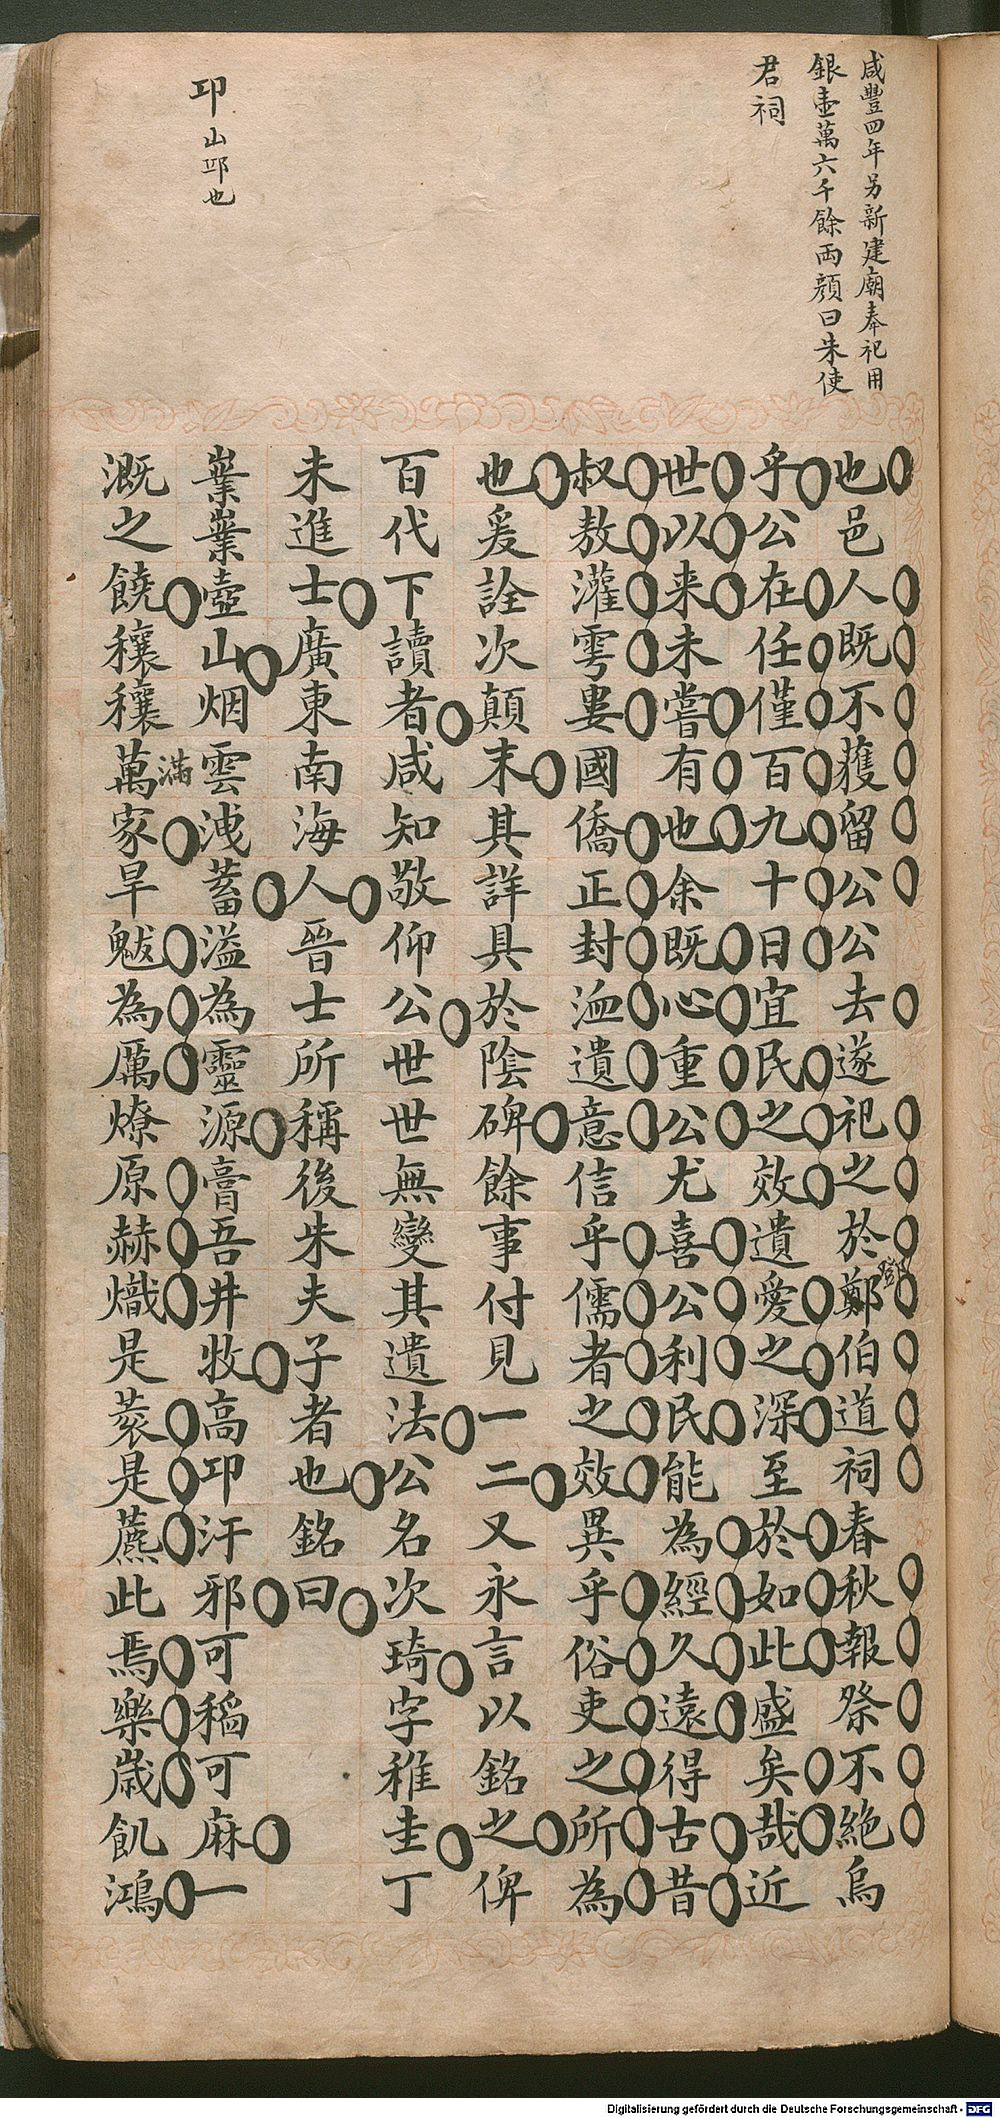 咸豐四年另新建廟奉祀用
銀壹萬六千餘両顔曰朱使
君祠
卭山卭也
也邑人既不蒦留公公去遂祀之於鄭伯道祠春秋報祭不絶烏
鄧
乎公在任僅百九十日宜民之效遺愛之深至於如此盛矣哉近
世以来未嘗有也余既心重公尤喜公利民能為經久遠得古昔
叔敖灌雩婁國僑正封洫遺意信乎儒者之效異乎俗吏之所為
也爰詮次顛末其詳具於陰碑餘事付見一二又永言以銘之俾
百代下讀者咸知敬仰公世世無變其遺法公名次琦字稚圭丁
未進士廣東南海人晉士所稱後朱夫子者也銘曰
嶪嶪壺山烟雲洩蓄溢為靈源膏吾井牧高卭汙邪可稻可麻一
溉之饒穰穰萬家旱魃為厲燎原赫熾是蓘是藨此焉樂歳飢鴻
滿
Digitalisierung gefördert durch die Deutsche Forschungsgemeinschaft - DFG